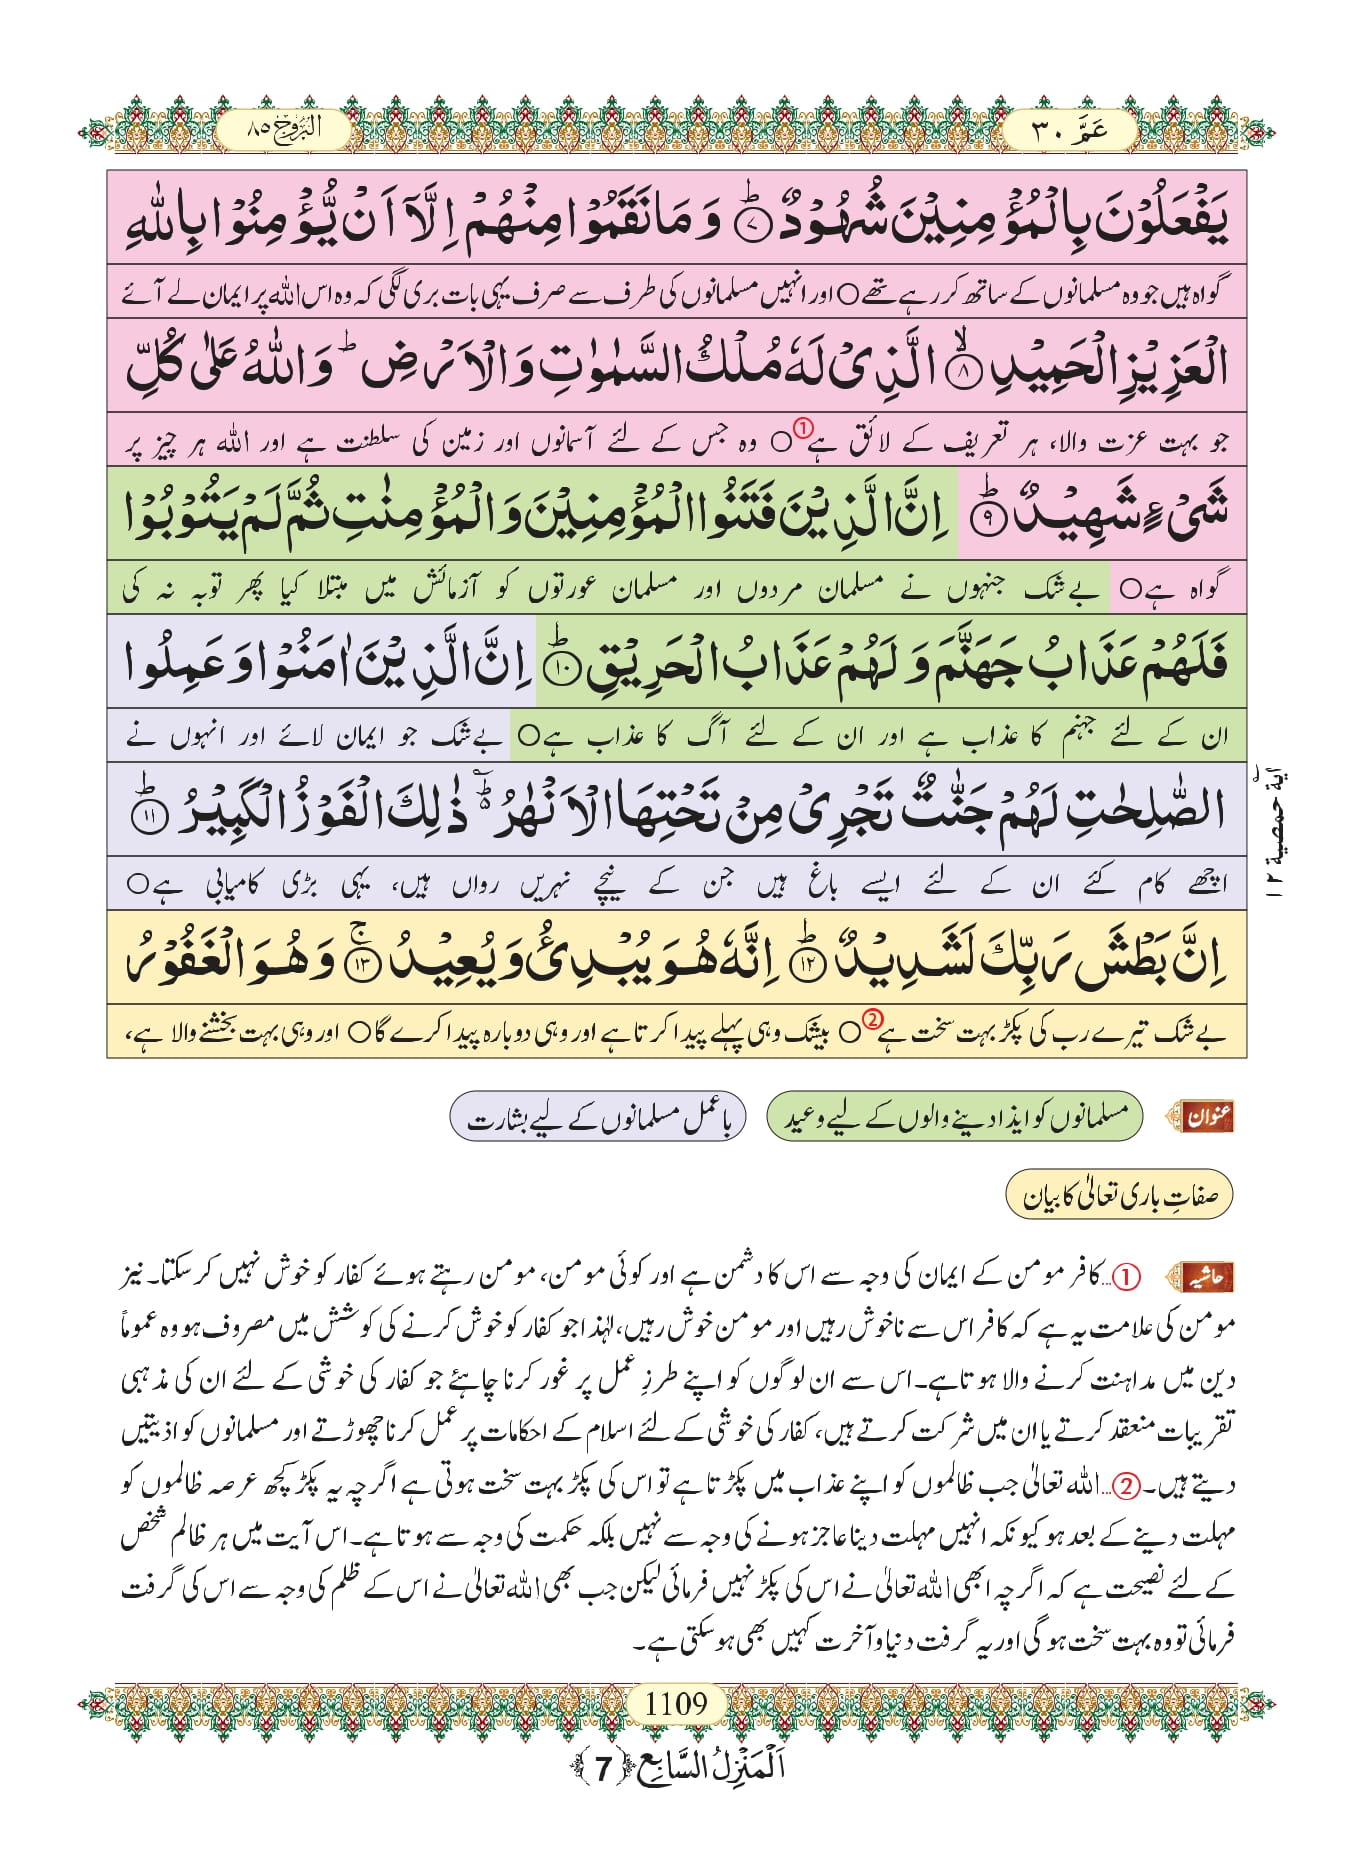 عَمَّ ٣٠
البُرُوْج ٨٥
يَفْعَلُوْنَ بِالْمُؤْمِنِيْنَ شُهُوْدٌؕ۝۷ وَ مَا نَقَمُوْا مِنْهُمْ اِلَّاۤ اَنْ یُّؤْمِنُوْا بِاللّٰهِ
گواہ ہیں جو وہ مسلمانوں کے ساتھ کر رہے تھے○ اور انہیں مسلمانوں کی طرف سے صرف یہی بات بری لگی کہ وہ اس اللہ پر ایمان لے آئے
الْعَزِیْزِ الْحَمِیْدِۙ۝۸ الَّذِیْ لَهٗ مُلْكُ السَّمٰوٰتِ وَ الْاَرْضِؕ وَ اللّٰهُ عَلٰى كُلِّ
جو بہت عزت والا، ہر تعریف کے لائق ہے①○ وہ جس کے لئے آسمانوں اور زمین کی سلطنت ہے اور اللہ ہر چیز پر
شَیْءٍ شَهِیْدٌؕ۝۹ اِنَّ الَّذِیْنَ فَتَنُوا الْمُؤْمِنِیْنَ وَ الْمُؤْمِنٰتِ ثُمَّ لَمْ یَتُوْبُوْا
گواہ ہے○ بے شک جنہوں نے مسلمان مردوں اور مسلمان عورتوں کو آزمائش میں مبتلا کیا پھر توبہ نہ کی
فَلَهُمْ عَذَابُ جَهَنَّمَ وَ لَهُمْ عَذَابُ الْحَرِیْقِؕ۝۱۰ اِنَّ الَّذِیْنَ اٰمَنُوْا وَ عَمِلُوا
ان کے لئے جہنم کا عذاب ہے اور ان کے لئے آگ کا عذاب ہے○ بے شک جو ایمان لائے اور انہوں نے
الصّٰلِحٰتِ لَهُمْ جَنّٰتٌ تَجْرِیْ مِنْ تَحْتِهَا الْاَنْهٰرُ۬ؕ ذٰلِكَ الْفَوْزُ الْكَبِیْرُؕ۝۱۱
اٰیة حمصیة ١٢
اچھے کام کئے ان کے لئے ایسے باغ ہیں جن کے نیچے نہریں رواں ہیں، یہی بڑی کامیابی ہے○
اِنَّ بَطْشَ رَبِّكَ لَشَدِیْدٌؕ۝۱۲ اِنَّهٗ هُوَ یُبْدِئُ وَ یُعِیْدُۚ۝۱۳ وَ هُوَ الْغَفُوْرُ
بے شک تیرے رب کی پکڑ بہت سخت ہے②○ بیشک وہی پہلے پیدا کرتا ہے اور وہی دوبارہ پیدا کرے گا○ اور وہی بہت بخشنے والا ہے،
عنوان مسلمانوں کو ایذا دینے والوں کے لیے وعید باعمل مسلمانوں کے لیے بشارت
صفاتِ باری تعالیٰ کا بیان
حاشیہ ①...کافر مومن کے ایمان کی وجہ سے اس کا دشمن ہے اور کوئی مومن، مومن رہتے ہوئے کفار کو خوش نہیں کر سکتا۔ نیز
مومن کی علامت یہ ہے کہ کافر اس سے ناخوش رہیں اور مومن خوش رہیں، لہٰذا جو کفار کو خوش کرنے کی کوشش میں مصروف ہو وہ عموماً
دین میں مداہنت کرنے والا ہوتا ہے۔ اس سے ان لوگوں کو اپنے طرزِ عمل پر غور کرنا چاہئے جو کفار کی خوشی کے لئے ان کی مذہبی
تقریبات منعقد کرتے یا ان میں شرکت کرتے ہیں، کفار کی خوشی کے لئے اسلام کے احکامات پر عمل کرنا چھوڑتے اور مسلمانوں کو اذیتیں
دیتے ہیں۔ ②...اللہ تعالیٰ جب ظالموں کو اپنے عذاب میں پکڑتا ہے تو اس کی پکڑ بہت سخت ہوتی ہے اگرچہ یہ پکڑ کچھ عرصہ ظالموں کو
مہلت دینے کے بعد ہو کیونکہ انہیں مہلت دینا عاجز ہونے کی وجہ سے نہیں بلکہ حکمت کی وجہ سے ہوتا ہے۔ اس آیت میں ہر ظالم شخص
کے لئے نصیحت ہے کہ اگرچہ ابھی اللہ تعالیٰ نے اس کی پکڑ نہیں فرمائی لیکن جب بھی اللہ تعالیٰ نے اس کے ظلم کی وجہ سے اس کی گرفت
فرمائی تو وہ بہت سخت ہوگی اور یہ گرفت دنیا و آخرت کہیں بھی ہو سکتی ہے۔
1109
اَلْمَنْزِلُ السَّابِع ﴿7﴾